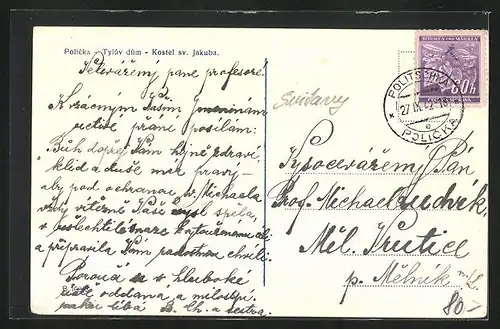 Polička - Tylův dům - Kostel sv. Jakuba.
Velevážený pane profesore!
K vzácným Vašim jmeninám
uctivé přání posílám:
Bůh dopřej Vám hojně zdraví,
klid a duše mír pravý -
aby pod ochranou sv. Michaela
vždy vítězně Vaše
a připravila Vám radostnou chvíli.
Poroučí se v hluboké
úctě oddaná a
ruku líbá a sestra.
Svitavy
BÖHMEN UND MÄHREN
60h
POLITSCHKA
27.IX.42
POLIČKA
Vysocevážený Pán
Prof. Michael Ludvík,
Měl. Vrutice
p. Mělník n/L.
80.-